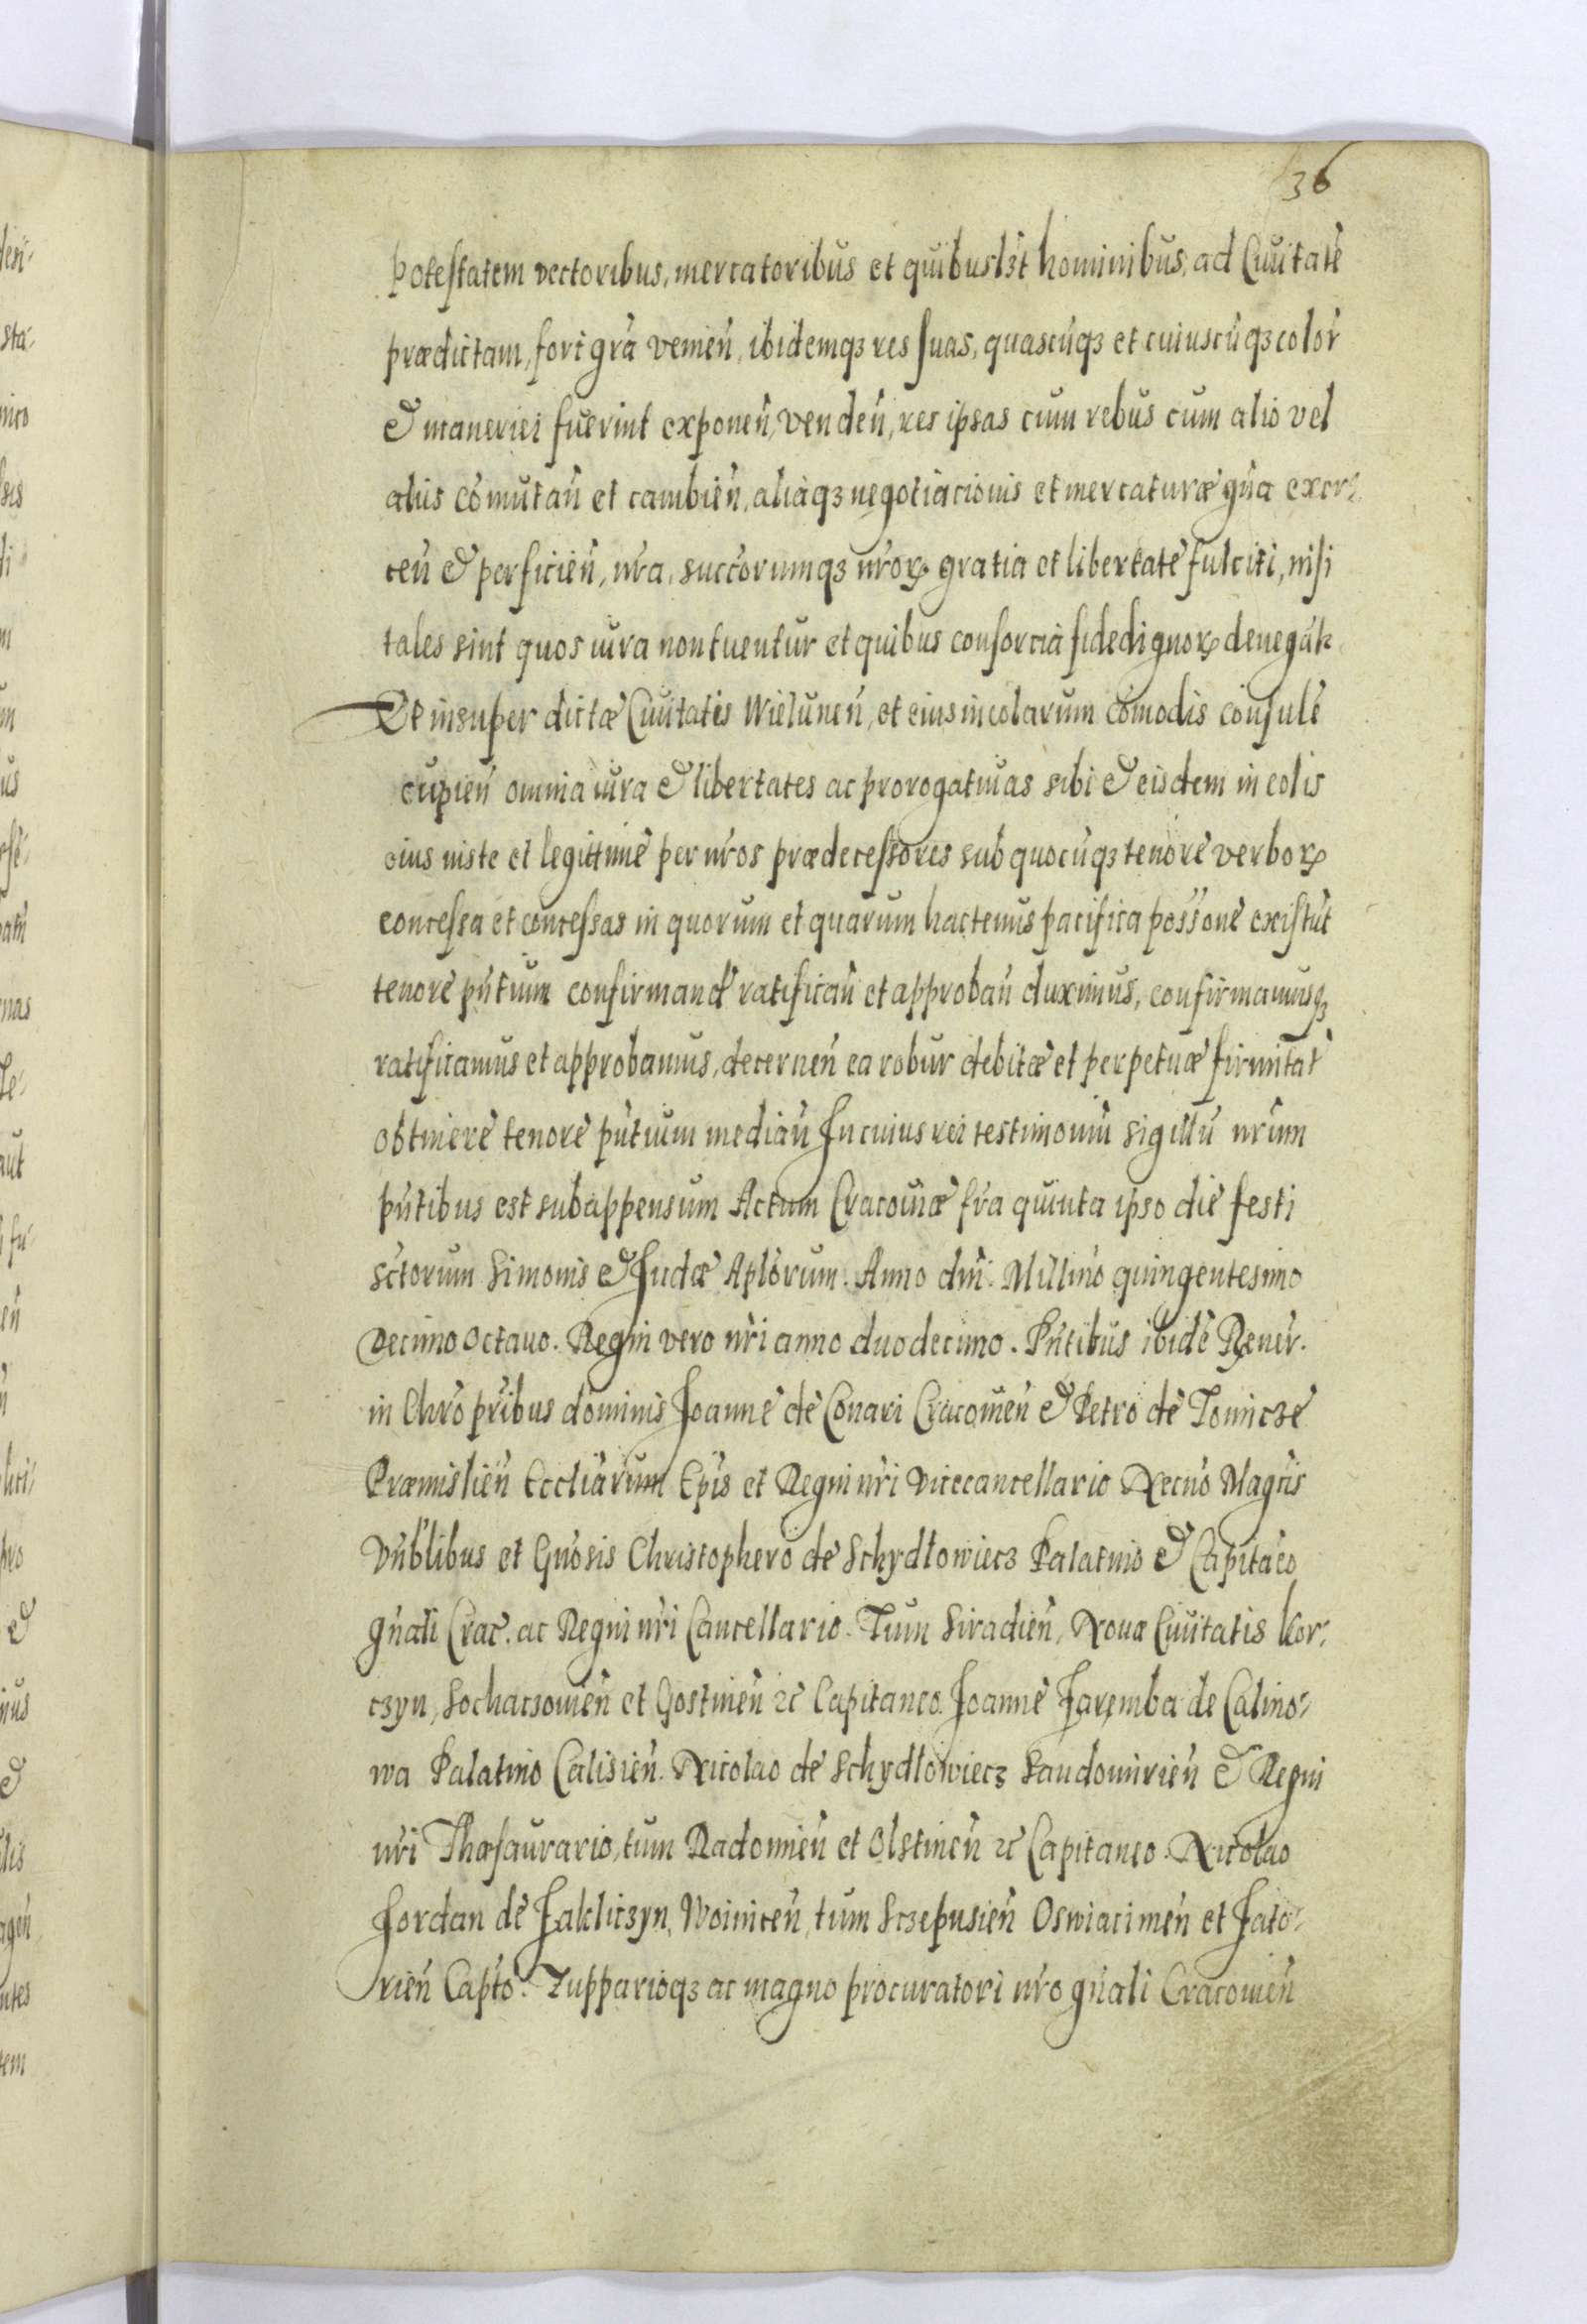 36
potestatem vectoribus, mercatoribus et quibuslȝt hominibus, ad Civitatē
prædictam, fori grā venień, ibidemqȝ res suas, quascūqȝ et cuiuscūqȝ color
et maneriei fuerint exponeń, vendeń, res ipsas cum rebus cum alio vel
aliis cōmutań et cambień, aliaqȝ negotiacionis et mercaturæ gńa exer-
ceń et perficień, nrā, succorumqȝ nrorꝝ gratia et libertate fulciti, nisi
tales sint quos iura non tuentur et quibus consorcia fidedignorꝝ denegāt
Et insuper dictæ Civitatis Wieluneń, et eius incolarum cōmodis consulē
cupień omnia iura et libertates ac prorogativas sibi et eisdem incolis
eius iuste et legittime per nros prædecessores sub quocūqȝ tenore verborꝝ
concessa et concessas in quorum et quarum hactenus pacifica possone existūt
tenore pńtium confirmand ratificań et approbań duximus, confirmamusqȝ
ratificamus et approbamus, decerneń ea robur debitæ et perpetuæ firmitat
obtinere tenore pńtium mediań In cuius rei testimoniū sigillū nrum
pńtibus est subappensum Actum Cracoviæ fra quinta ipso die festi
sctorum Simonis et Judæ Aplorum. Anno dni. Millino quingentesimo
Decimo Octavo. Regni vero nri anno duodecimo. Pńtibus ibidē Rener.
in Chro pribus dominis Joanne de Conari Cracovień et Petro de Tomicze
Præmislień Eccliarum Epis et Regni nri Vicecancellario Necno Magcis
Vnblibus et Gńosis Christophero de Schydłowiecz Palatino et Capitaeo
gńali Crac. ac Regni nri Cancellario. Tum Siradień, Novæ Civitatis Kor-
czyn, Sochaczovień et Gostinień ꝛc Capitaneo. Joanne Jaremba de Calino-
wa Palatino Calisień. Nicolao de Schydłowiecz Sandomirień et Regni
nri Thæsaurario, tum Radomień et Olstineń ꝛc Capitaneo. Nicolao
Jordan de Zakliczyn, Woiniceń, tum Sczepusień Oswiacimeń et Zato-
rień Capto. Zupparioqȝ ac magno procuratori nro gńali Cracovień